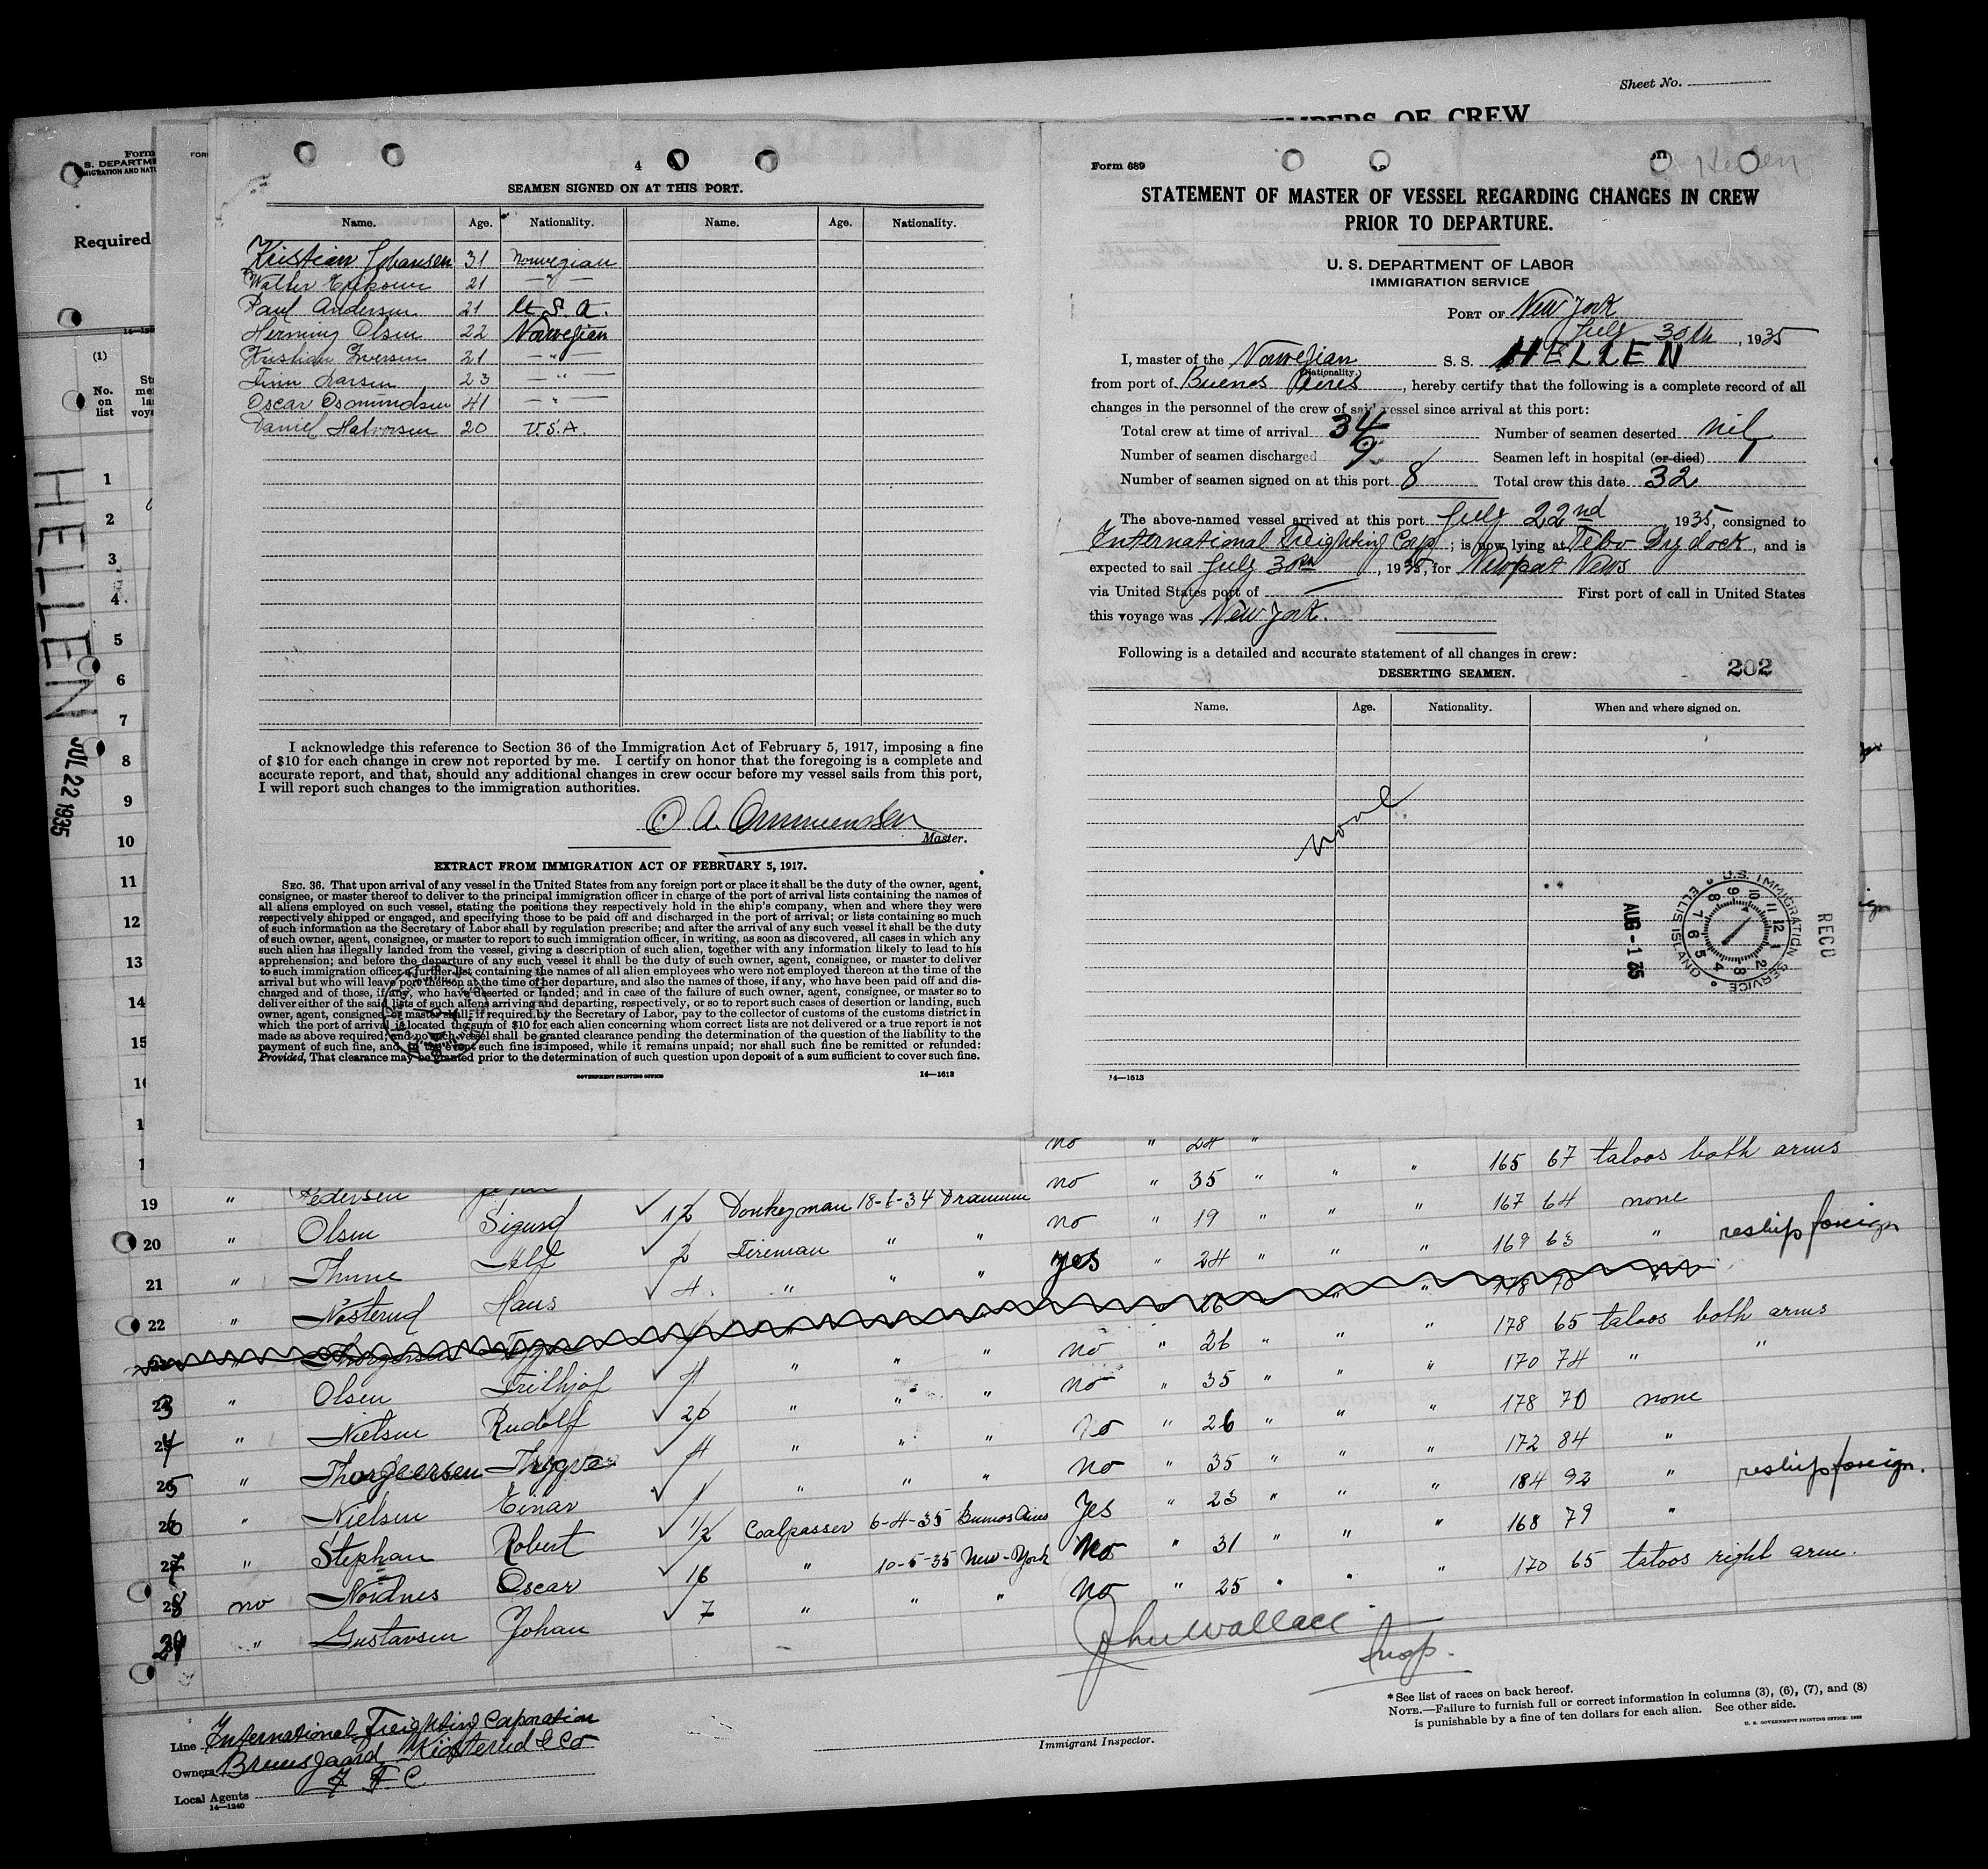 Sheet No.
MEMBERS OF CREW
Form
S. DEPARTME
MIGRATION AND NATU
FOR
Required
14—12
(1)
No. on list
HELLEN
JUL 22 1935
1
2
3
4
5
6
7
8
9
10
11
12
13
14
15
4
SEAMEN SIGNED ON AT THIS PORT.
Name. Age. Nationality. Name. Age. Nationality.
Kristian Johansen 31 Norwegian
Walter 21 — " —
Paul Andersen 21 U. S. A.
Herming Olsen 22 Norwegian
Kristian Iversen 21 — " —
Finn Larsen 23 — " —
Oscar Osmundsen 41 — " —
Daniel Halvorsen 20 U.S.A.
I acknowledge this reference to Section 36 of the Immigration Act of February 5, 1917, imposing a fine
of $10 for each change in crew not reported by me. I certify on honor that the foregoing is a complete and
accurate report, and that, should any additional changes in crew occur before my vessel sails from this port,
I will report such changes to the immigration authorities.
O A.
Master.
EXTRACT FROM IMMIGRATION ACT OF FEBRUARY 5, 1917.
SEC. 36. That upon arrival of any vessel in the United States from any foreign port or place it shall be the duty of the owner, agent,
consignee, or master thereof to deliver to the principal immigration officer in charge of the port of arrival lists containing the names of
all aliens employed on such vessel, stating the positions they respectively hold in the ship's company, when and where they were
respectively shipped or engaged, and specifying those to be paid off and discharged in the port of arrival; or lists containing so much
of such information as the Secretary of Labor shall by regulation prescribe; and after the arrival of any such vessel it shall be the duty
of such owner, agent, consignee, or master to report to such immigration officer, in writing, as soon as discovered, all cases in which any
such alien has illegally landed from the vessel, giving a description of such alien, together with any information likely to lead to his
apprehension; and before the departure of any such vessel it shall be the duty of such owner, agent, consignee, or master to deliver
to such immigration officer a further list containing the names of all alien employees who were not employed thereon at the time of the
arrival but who will leave port thereon at the time of her departure, and also the names of those, if any, who have been paid off and dis-
charged and of those, if any, who have deserted or landed; and in case of the failure of such owner, agent, consignee, or master so to
deliver either of the said lists of such aliens arriving and departing, respectively, or so to report such cases of desertion or landing, such
owner, agent, consignee, or master shall, if required by the Secretary of Labor, pay to the collector of customs of the customs district in
which the port of arrival is located the sum of $10 for each alien concerning whom correct lists are not delivered or a true report is not
made as above required; and no such vessel shall be granted clearance pending the determination of the question of the liability to the
payment of such fine, and in the event such fine is imposed, while it remains unpaid; nor shall such fine be remitted or refunded:
Provided, That clearance may be granted prior to the determination of such question upon deposit of a sum sufficient to cover such fine.
GOVERNMENT PRINTING OFFICE 14—1613
Form 689
Hellen
STATEMENT OF MASTER OF VESSEL REGARDING CHANGES IN CREW
PRIOR TO DEPARTURE.
U. S. DEPARTMENT OF LABOR
IMMIGRATION SERVICE
PORT OF New York
July 30th, 1935
I, master of the Norwegian S. S. HELLEN
(Nationality.)
from port of Buenos Aires, hereby certify that the following is a complete record of all
changes in the personnel of the crew of said vessel since arrival at this port:
Total crew at time of arrival 34 Number of seamen deserted nil
Number of seamen discharged 9 Seamen left in hospital (or died) 1
Number of seamen signed on at this port 8 Total crew this date 32
The above-named vessel arrived at this port July 22nd, 1935, consigned to
International Freighting Corp; is now lying at Tebo Dry dock, and is
expected to sail July 30th, 1935, for Newport News
via United States port of — First port of call in United States
this voyage was New York.
Following is a detailed and accurate statement of all changes in crew:
202
DESERTING SEAMEN.
Name. Age. Nationality. When and where signed on.
none
U.S. IMMIGRATION SERVICE ELLIS ISLAND
AUG -1 35
RECD
14—1613
no " 24 "
no " 35 " " " 165 67 tatoos both arms
19 " Pedersen 12 Donkeyman 18-6-34 Drammen no " 19 " " " 167 64 none
20 " Olsen Sigurd 2 Fireman " " yes " 24 " " " 169 63 " reship foreign
21 " Thune Alf 4 " " "
22 " Nösterud Hans 26 178 70
no " 26 " " " 178 65 tatoos both arms
23 " Olsen Frithjof 4 " " " no " 35 " " " 170 74 " "
24 " Nielsen Rudolf 20 " " " no " 26 " " " 178 70 none
25 " Thorgeersen Trygve 4 " " " no " 35 " " " 172 84 "
26 " Nielsen Einar 1 " " " Yes " 23 " " " 184 92 " reship foreign.
27 " Stephan Robert 1/2 Coalpasser 6-4-35 Buenos Aires No " 31 " " " 168 79 "
28 no Nordnes Oscar 16 " 10-5-35 New-York No " 25 " " " 170 65 tatoos right arm.
29 " Gustavsen Johan 7 " " "
John Wallace
Insp.
Immigrant Inspector.
* See list of races on back hereof.
NOTE.—Failure to furnish full or correct information in columns (3), (6), (7), and (8)
is punishable by a fine of ten dollars for each alien. See other side.
Line International Freighting Corporation
Owners Bruusgaard Kiösterud & Co
Local Agents I. F. C
14—1240